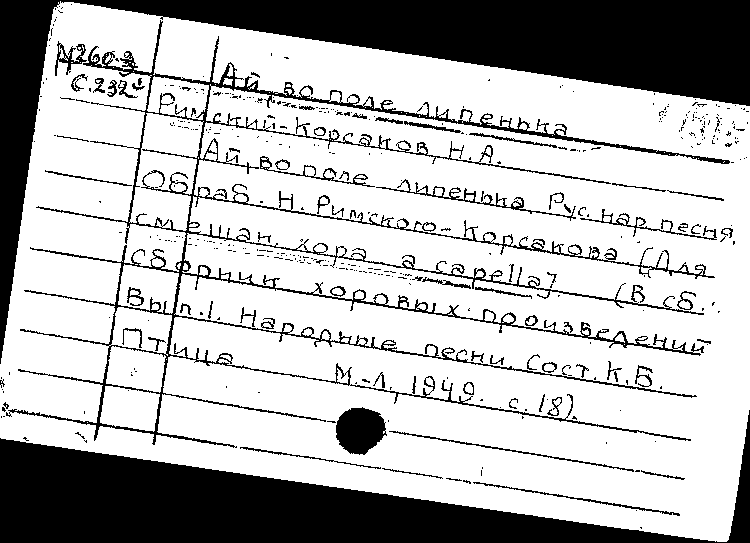 Ай, во поле липенька
С.232
Римский-Корсаков, Н.А.
Ай, во поле липенька. Рус. нар. песня.
Обраб. Н. Римского-Корсакова [Для
смешан. хора a capella] (В сб.:
Сборник хоровых произведений
Вып.1. Народные песни. Сост. К.Б.
Птица. М.-Л., 1949. с. 18).